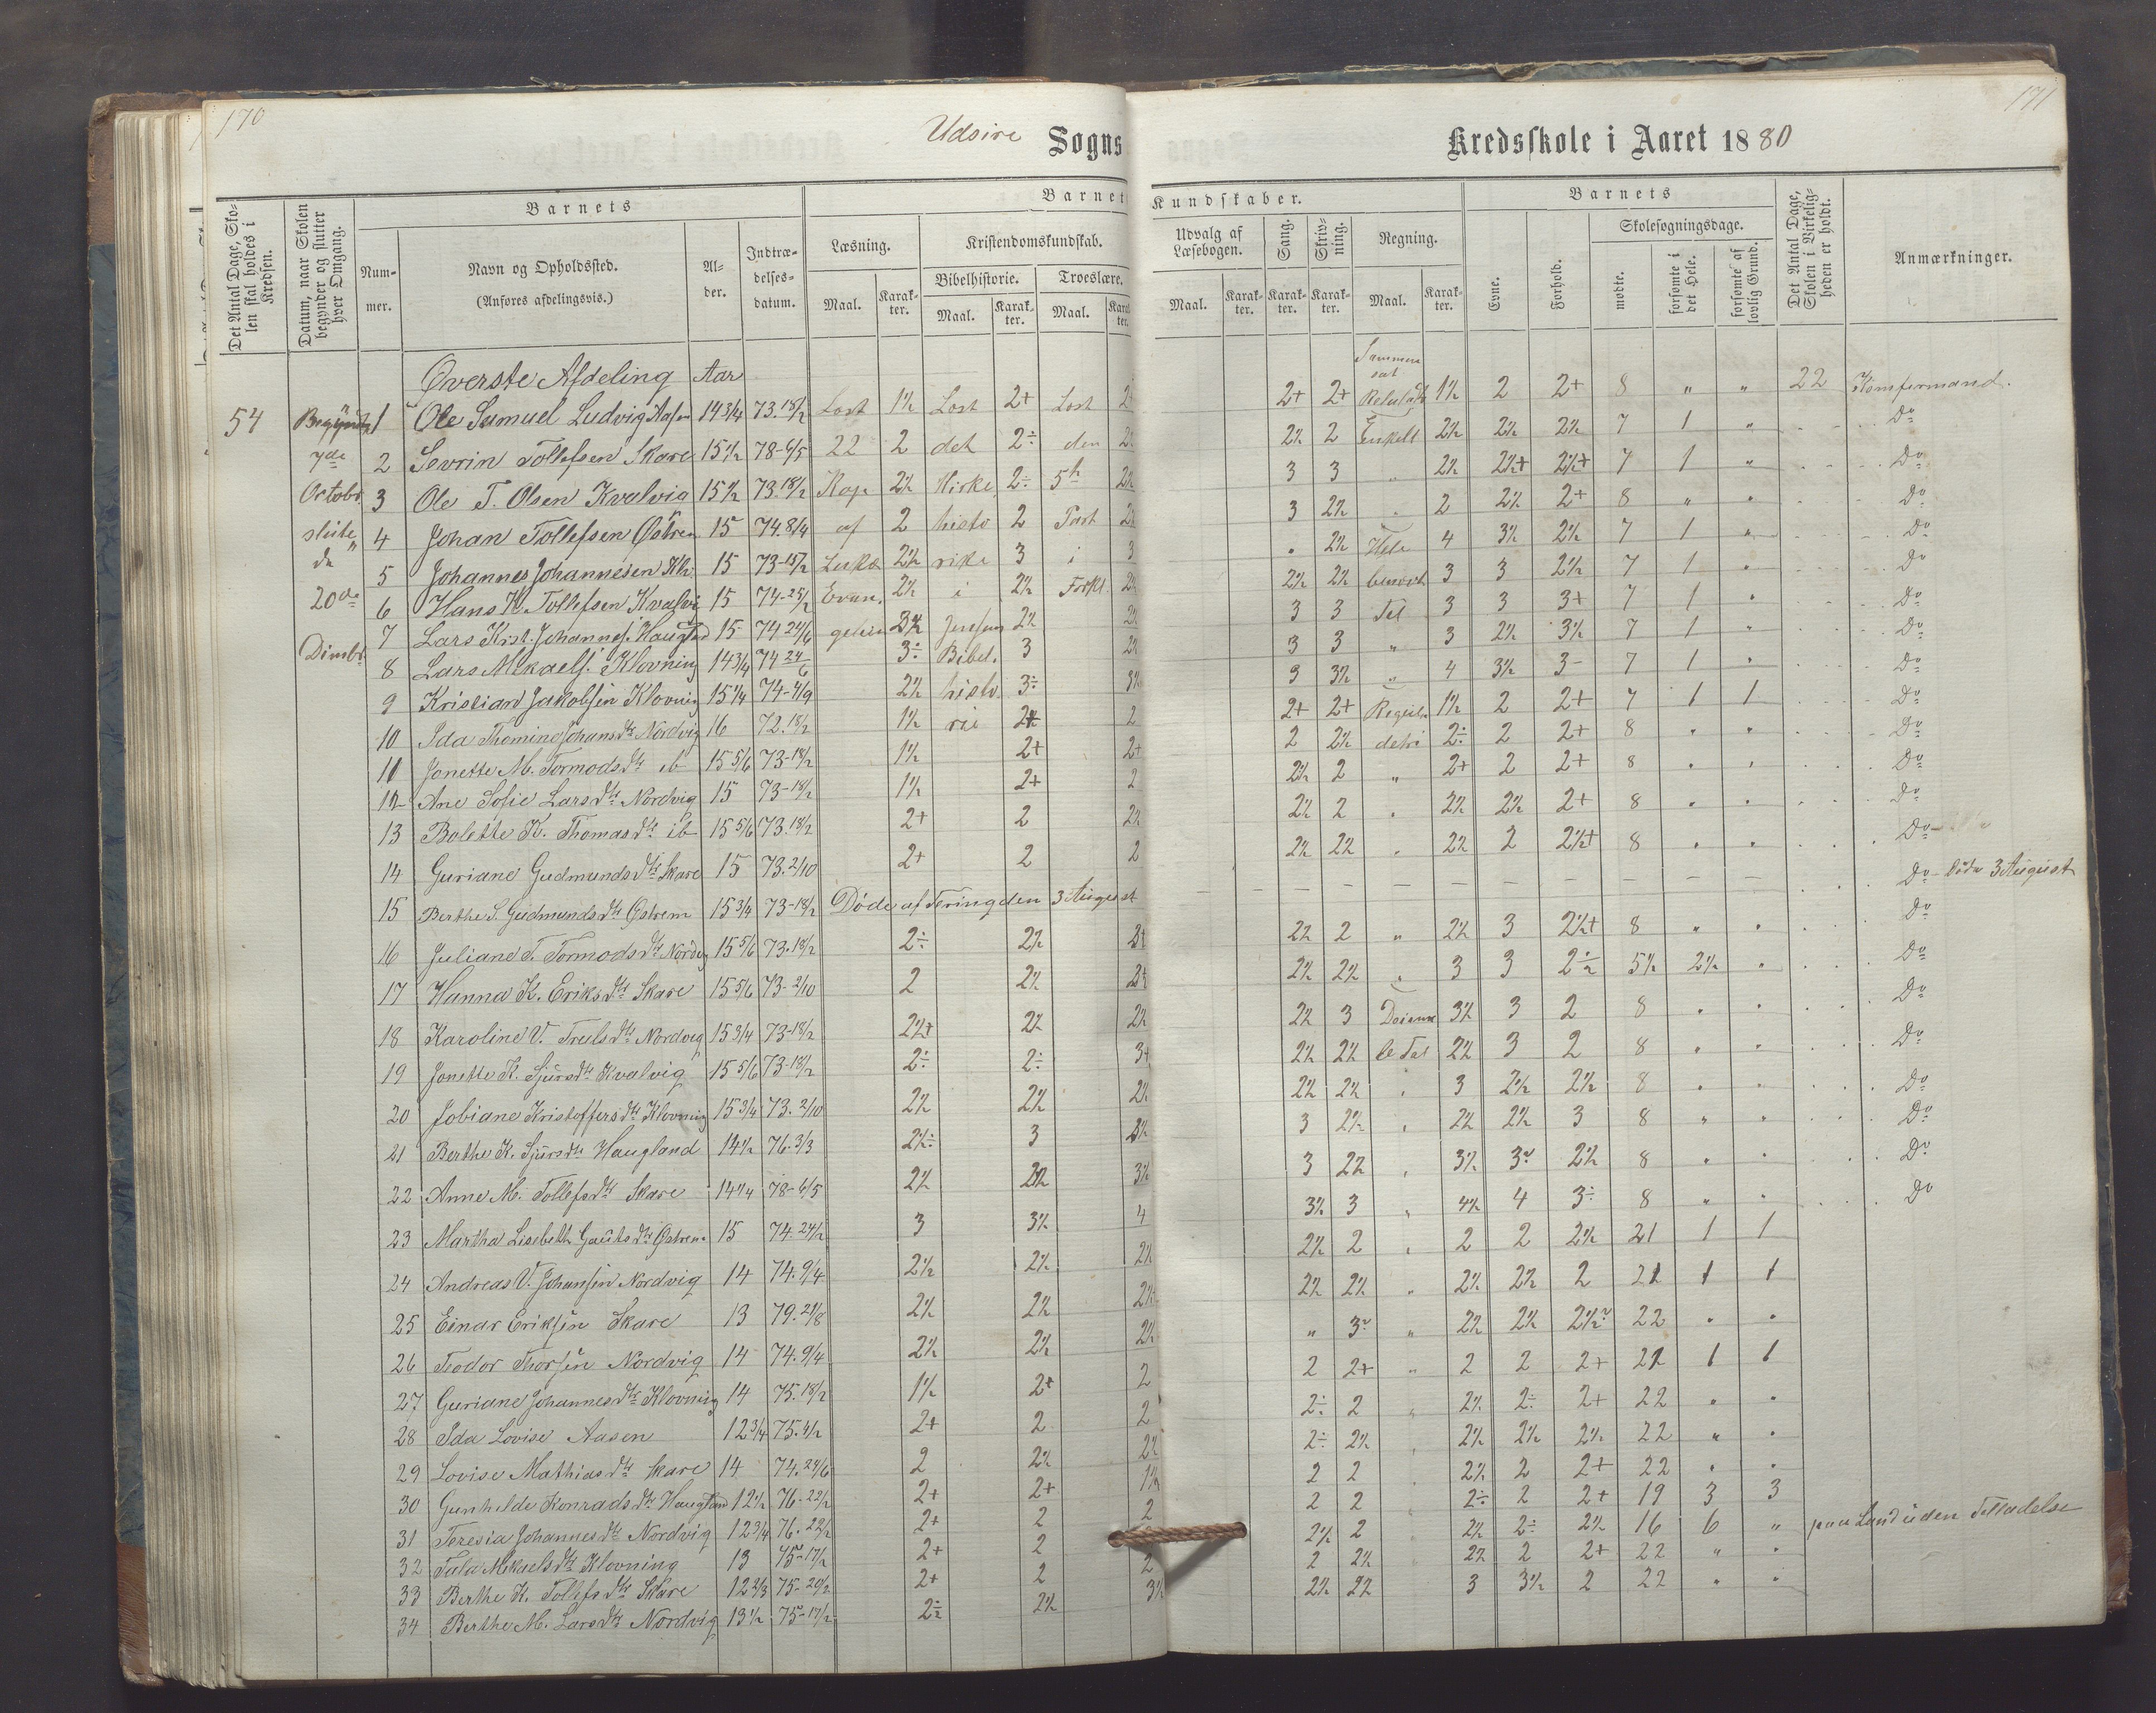 170
Udsire Sogns
Kredsskole i Aaret 1880
171
Det Antal Dage, Skolen skal holdes i Kredsen.
Datum, naar Skolen begynder og slutter hver Omgang.
Barnets
Nummer.
Navn og Opholdssted.
(Anføres afdelingsvis.)
Alder.
Indtrædelsesdatum.
Barnets Kundskaber.
Læsning.
Maal.
Karakter.
Kristendomskundskab.
Bibelhistorie.
Maal.
Karakter.
Troeslære.
Maal.
Karakter.
Udvalg af Læsebogen.
Maal.
Karakter.
Sang.
Karakter.
Skrivning.
Karakter.
Regning.
Maal.
Karakter.
Barnets
Evne.
Forhold.
Skolesøgningsdage.
mødte.
forsømte i det Hele.
forsømte af lovlig Grund.
Det Antal Dage, Skolen i Virkeligheden er holdt.
Anmærkninger.
Øverste Afdeling Aar
54 1 Ole Samuel Ludvig Aasen 14 3/4 73.18/2 1½ 2+ 2+ 2+ 1½ 2 2+ 8 " " 22 Konfirmand.
7de 2 Sevrin Tollefsen Skare 15½ 78-6/5 22 2 det 2÷ den 2½ 2 Enkelt 2½ 2½ 2½ 7 1 " Do
Octobr 3 Ole T. Olsen Kvalvig 15½ 73.18/2 Kap 2½ 2÷ 5h 2½ 3 3 " 2½ 2½+ 2½+ 7 1 " Do
4 Johan Tollefsen Østrem 15 74.8/4 af 2 histo 2 Part 3 2½ " 2 2½ 2+ 8 " " Do
5 Johannes Johannesen Kl. 15 73-18/2 Lukæ 2½ 3 i 3 " 2½ 4 3½ 2½ 7 1 " Do
20de 6 Hans K. Tollefsen Kvalvi 15 74-25/2 Evan. 2½ i 2½ Forkl. 2½ 2½ 3 3 2½ 7 1 " Do
7 Lars Krist. Johannes. Haugland 15 74 24/6 2½ 3 3 Tal 3 3 3+ 7 1 " Do
8 Lars Mikaels. Klovning 14 3/4 74 24/6 3÷ Bibel. 3 3 3 " 3 2½ 3½ 7 1 " Do
9 Kristian Jakobsen Klovning 15¼ 74-4/9 2½ histo. 3÷ 3 3½ " 4 3½ 3- 7 1 " Do
10 Ida Thomine Johansdtr Nordvig 16 72.18/2 1½ rie 2 2+ 2+ 1½ 2 2+ 7 1 1 Do
11 Jonette M. Tormodsdtr ib 15 5/6 73-18/2 1½ 2+ 2+ 2 2½ 2÷ 2 2+ 8 " " Do
12 Ane Sofie Larsdtr Nordvig 15 73-18/2 1½ 2+ 2 2½ 2 " 2+ 2 2+ 8 " " Do
13 Bolette K. Thomasdtr ib 15 5/6 73.18/2 2+ 2 2½ 2½ 2 " 2½ 2½ 2+ 8 " " Do
14 Guriane Gudmundsdtr Skare 15 73.2/10 2+ 2 2 2½ 2½ " 2½ 2 2½+ 8 " " Do
15 Berthe S. Gudmundsdtr Østrem 15 3/4 73-18/2 Døde af Tæring den 3 August Do - Døde 3 August
16 Juliane T. Tormodsdtr Nordvig 15 5/6 73.18/2 2÷ 2½ 2½ 2 " 2½ 3 2½+ 8 " " Do
17 Hanna K. Eriksdtr Skare 15 5/6 73-2/10 2 2½ 2½ 2½ " 3 3 2÷ 5½ 2½ " Do
18 Karoline V. Trulsdtr Nordvig 15 3/4 73-18/2 2½+ 2½ 2½ 2½ 3 3½ 3 2 8 " " Do
19 Jonette K. Sjursdtr Kvalvig 15 5/6 73-18/2 2÷ 2÷ 3+ 2½ 2½ le Tal 2½ 3 2 8 " " Do
20 Jobiane Kristoffersdtr Klovning 15 3/4 73.2/10 2½ 2½ 2½ 2½ 2½ " 3 2½ 2½ 8 " " Do
21 Berthe K. Sjursdtr Haugland 14½ 76.3/3 2½÷ 3 3 2½ " 2½ 2½ 3 8 " " Do
22 Anne M. Tollefsdtr Skare 14¼ 78-6/5 2½ 3½ 3 2½ " 3½ 3 2½ 8 " " Do
23 Martha Lisebeth Gautsdtr Østrem 15 74.24/2 3 3½ 4 3½ 3 " 4½ 4 3÷ 8 " " Do
24 Andreas V. Johansen Nordvig 14 74.9/4 2½ 2½ 2½ 2½ 2 " 2 2 2½ 21 1 1
25 Einar Eriksen Skare 13 79.21/8 2½ 2½ 2½ 2½ 2½ " 2½ 2½ 2 21 1 1
26 Teodor Thorsen Nordvig 14 74.9/4 2½ 2½ 2½ " 3 " 2½ 2½ 2½ 22 " "
27 Guriane Johannesdtr Klovning 14 75.18/2 1½ 2+ 2 2 2+ " 2 2 2+ 21 1 1
28 Ida Lovise Aasen 12 3/4 75.4/2 2+ 2 2 2÷ 2 " 2½ 2÷ 2+ 22 " "
29 Lovise Mathiasdtr Skare 14 74.24/6 2 2½ 2½ 2÷ 2½ " 2½ 2½ 2½ 22 " "
30 Gunhilde Konradsdtr Haugland 12½ 76-22/2 2+ 2+ 1½ 2 2 " 2½ 2 2+ 22 " "
31 Teresia Johannesdtr Nordvig 12 3/4 76.22/2 2+ 2 2 2 2 2÷ 2 2+ 19 3 3
32 Tala Mikaelsdtr Klovning 13 75-17/2 2+ 2 2½ 2 2½ 2÷ 2½ 16 6 " paa Land uden Tilladelse
33 Berthe K. Tollefsdtr Skare 12 2/3 75-20/2 2+ 2 2 2 2½ 2½ 2 2+ 22 " "
34 Berthe M. Larsdtr Nordvig 13½ 75-17/2 2÷ 2½ 3½ 2½ 2½ 3 3½ 2 22 " "